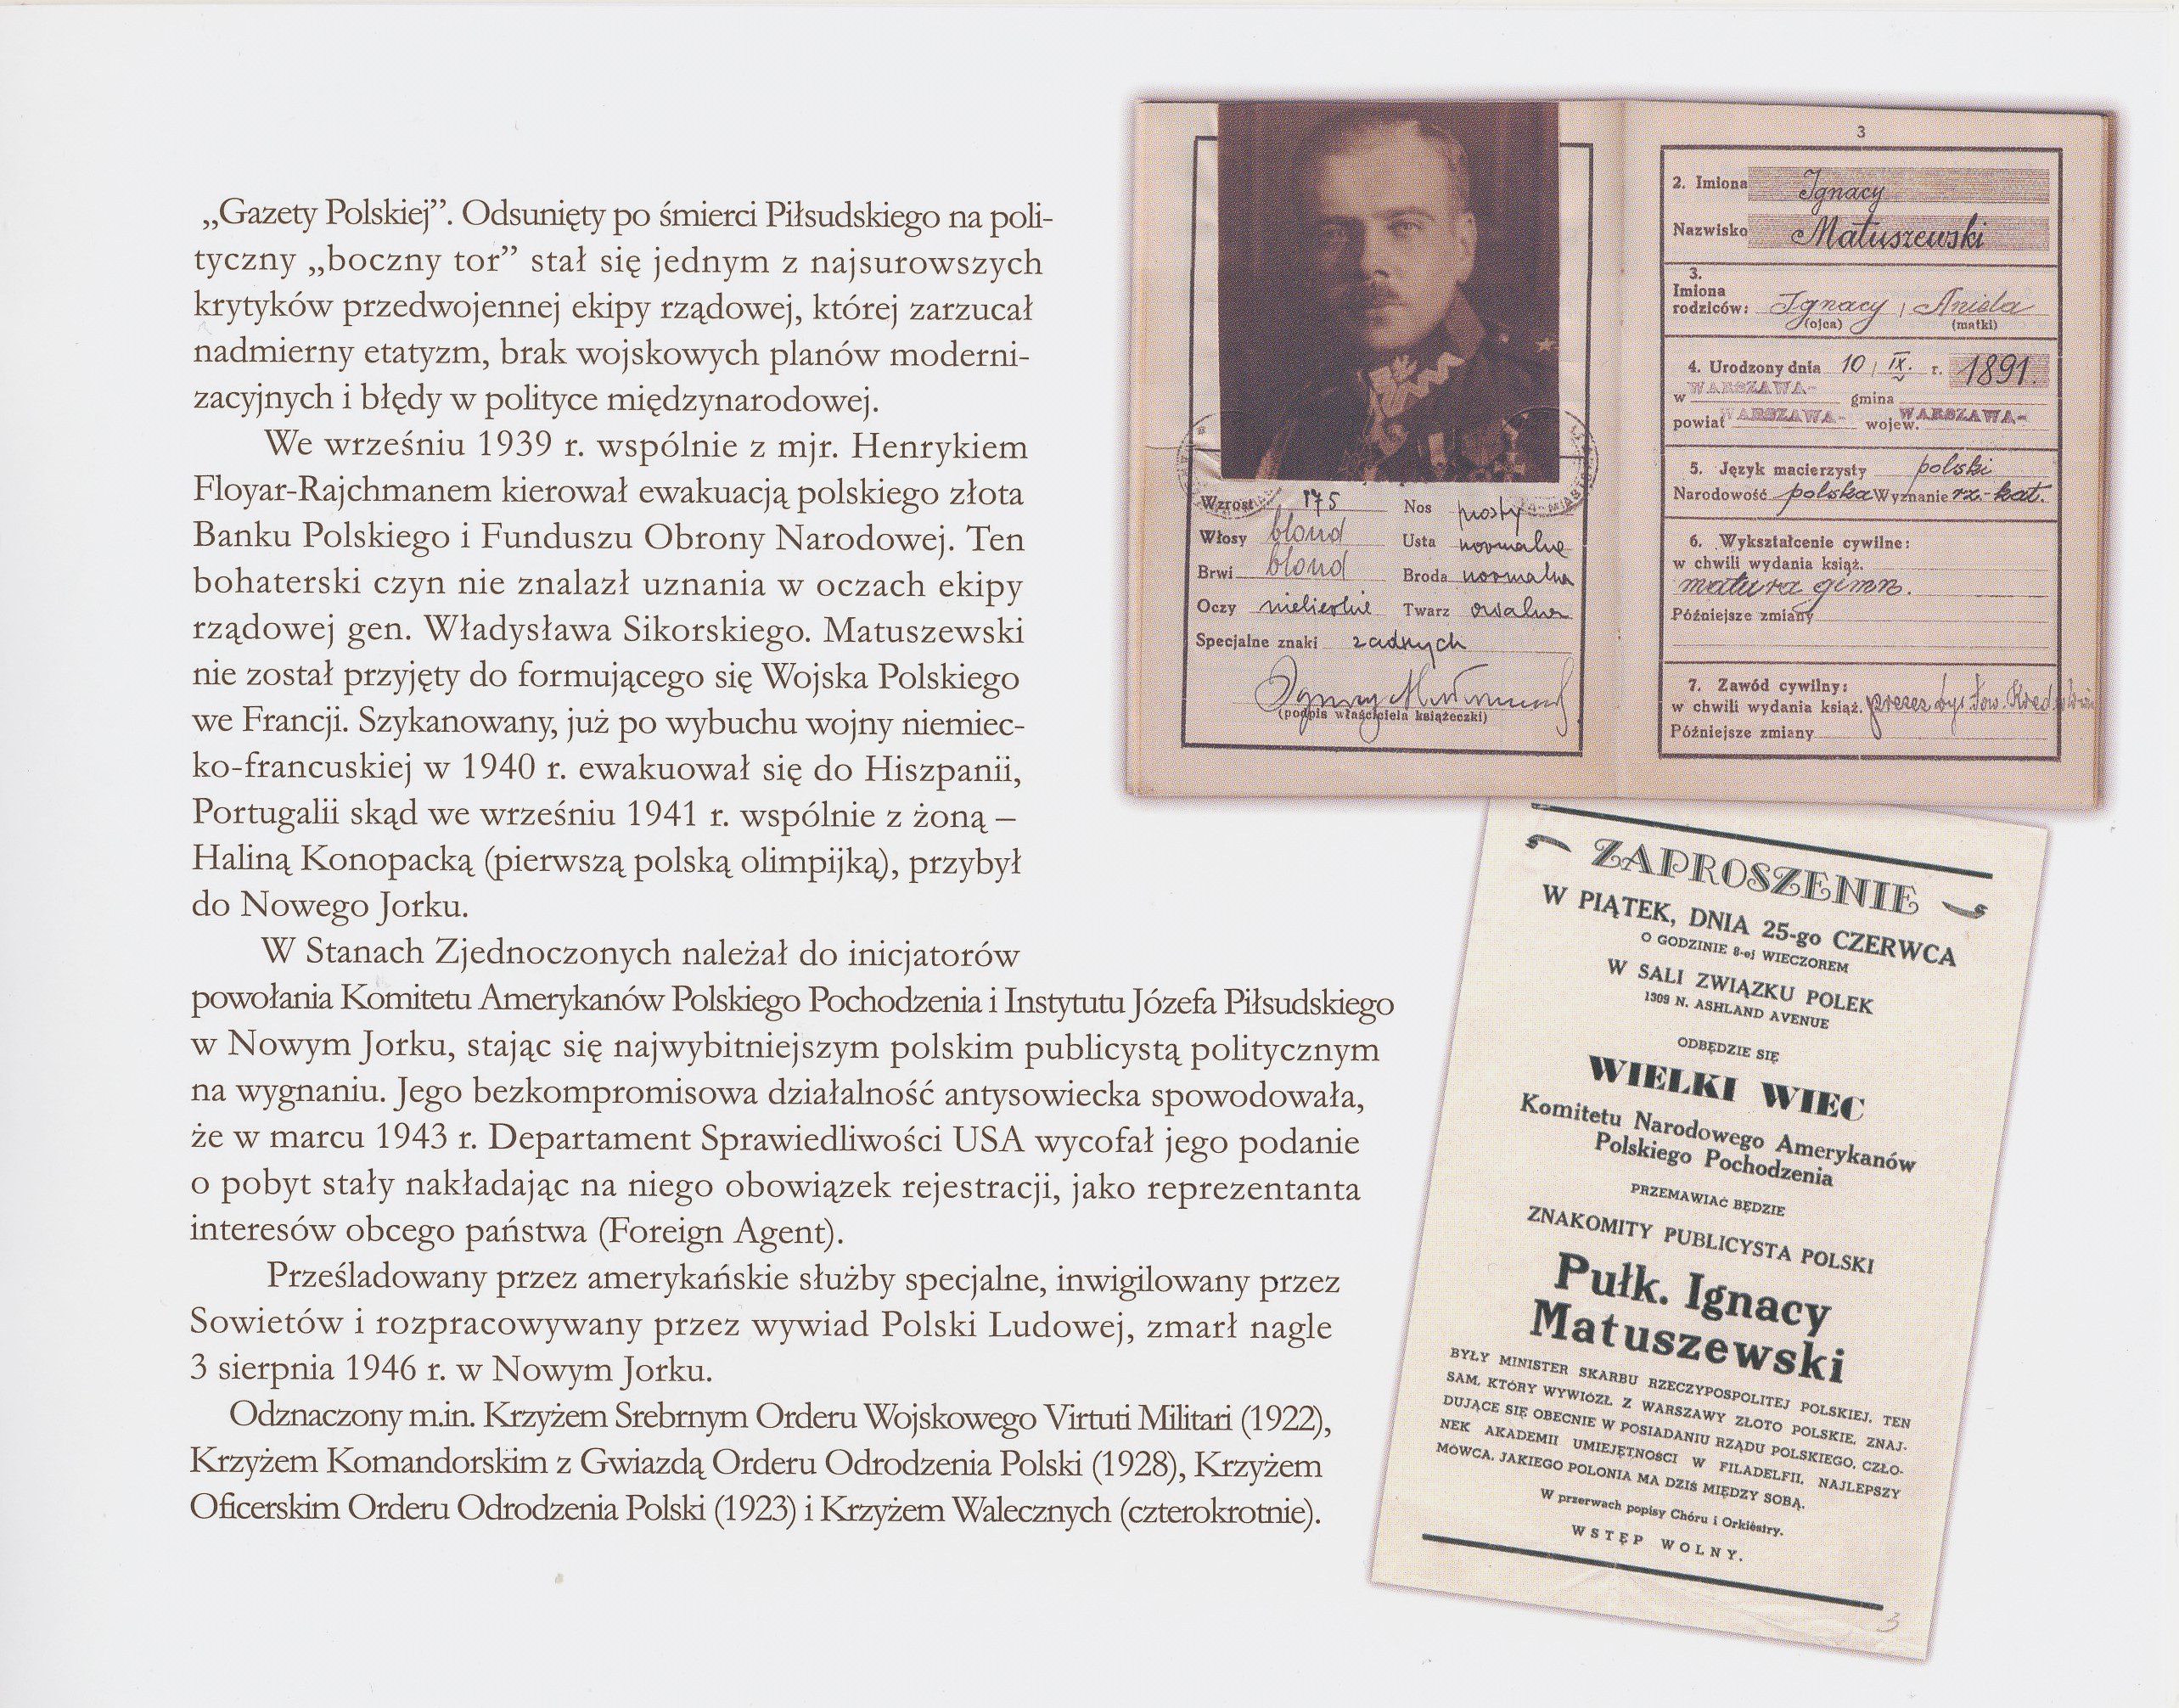 „Gazety Polskiej”. Odsunięty po śmierci Piłsudskiego na poli-
tyczny „boczny tor” stał się jednym z najsurowszych
krytyków przedwojennej ekipy rządowej, której zarzucał
nadmierny etatyzm, brak wojskowych planów moderni-
zacyjnych i błędy w polityce międzynarodowej.
We wrześniu 1939 r. wspólnie z mjr. Henrykiem
Floyar-Rajchmanem kierował ewakuacją polskiego złota
Banku Polskiego i Funduszu Obrony Narodowej. Ten
bohaterski czyn nie znalazł uznania w oczach ekipy
rządowej gen. Władysława Sikorskiego. Matuszewski
nie został przyjęty do formującego się Wojska Polskiego
we Francji. Szykanowany, już po wybuchu wojny niemiec-
ko-francuskiej w 1940 r. ewakuował się do Hiszpanii,
Portugalii skąd we wrześniu 1941 r. wspólnie z żoną –
Haliną Konopacką (pierwszą polską olimpijką), przybył
do Nowego Jorku.
W Stanach Zjednoczonych należał do inicjatorów
powołania Komitetu Amerykanów Polskiego Pochodzenia i Instytutu Józefa Piłsudskiego
w Nowym Jorku, stając się najwybitniejszym polskim publicystą politycznym
na wygnaniu. Jego bezkompromisowa działalność antysowiecka spowodowała,
że w marcu 1943 r. Departament Sprawiedliwości USA wycofał jego podanie
o pobyt stały nakładając na niego obowiązek rejestracji, jako reprezentanta
interesów obcego państwa (Foreign Agent).
Prześladowany przez amerykańskie służby specjalne, inwigilowany przez
Sowietów i rozpracowywany przez wywiad Polski Ludowej, zmarł nagle
3 sierpnia 1946 r. w Nowym Jorku.
Odznaczony m.in. Krzyżem Srebrnym Orderu Wojskowego Virtuti Militari (1922),
Krzyżem Komandorskim z Gwiazdą Orderu Odrodzenia Polski (1928), Krzyżem
Oficerskim Orderu Odrodzenia Polski (1923) i Krzyżem Walecznych (czterokrotnie).
Wzrost 175 Nos prosty
Włosy blond Usta normalne
Brwi blond Broda normalna
Oczy niebieskie Twarz owalna
Specjalne znaki żadnych
(podpis właściciela książeczki)
3
2. Imiona Ignacy
Nazwisko Matuszewski
3.
Imiona
rodziców: Ignacy, Aniela
(ojca) (matki)
4. Urodzony dnia 10 IX. r. 1891.
w WARSZAWA- gmina
powiat WARSZAWA- wojew. WARSZAWA-
5. Język macierzysty polski
Narodowość polska Wyznanie rz.-kat.
6. Wykształcenie cywilne:
w chwili wydania książ.
matura gimn.
Późniejsze zmiany
7. Zawód cywilny:
w chwili wydania książ. prezes Tow. Kred.
Późniejsze zmiany
ZAPROSZENIE
W PIĄTEK, DNIA 25-go CZERWCA
O GODZINIE 8-ej WIECZOREM
W SALI ZWIĄZKU POLEK
1309 N. ASHLAND AVENUE
ODBĘDZIE SIĘ
WIELKI WIEC
Komitetu Narodowego Amerykanów
Polskiego Pochodzenia
PRZEMAWIAĆ BĘDZIE
ZNAKOMITY PUBLICYSTA POLSKI
Pułk. Ignacy
Matuszewski
BYŁY MINISTER SKARBU RZECZYPOSPOLITEJ POLSKIEJ, TEN
SAM, KTÓRY WYWIÓZŁ Z WARSZAWY ZŁOTO POLSKIE, ZNAJ-
DUJĄCE SIĘ OBECNIE W POSIADANIU RZĄDU POLSKIEGO, CZŁO-
NEK AKADEMII UMIEJĘTNOŚCI W FILADELFII, NAJLEPSZY
MÓWCA, JAKIEGO POLONIA MA DZIŚ MIĘDZY SOBĄ.
W przerwach popisy Chóru i Orkiestry.
WSTĘP WOLNY.
3